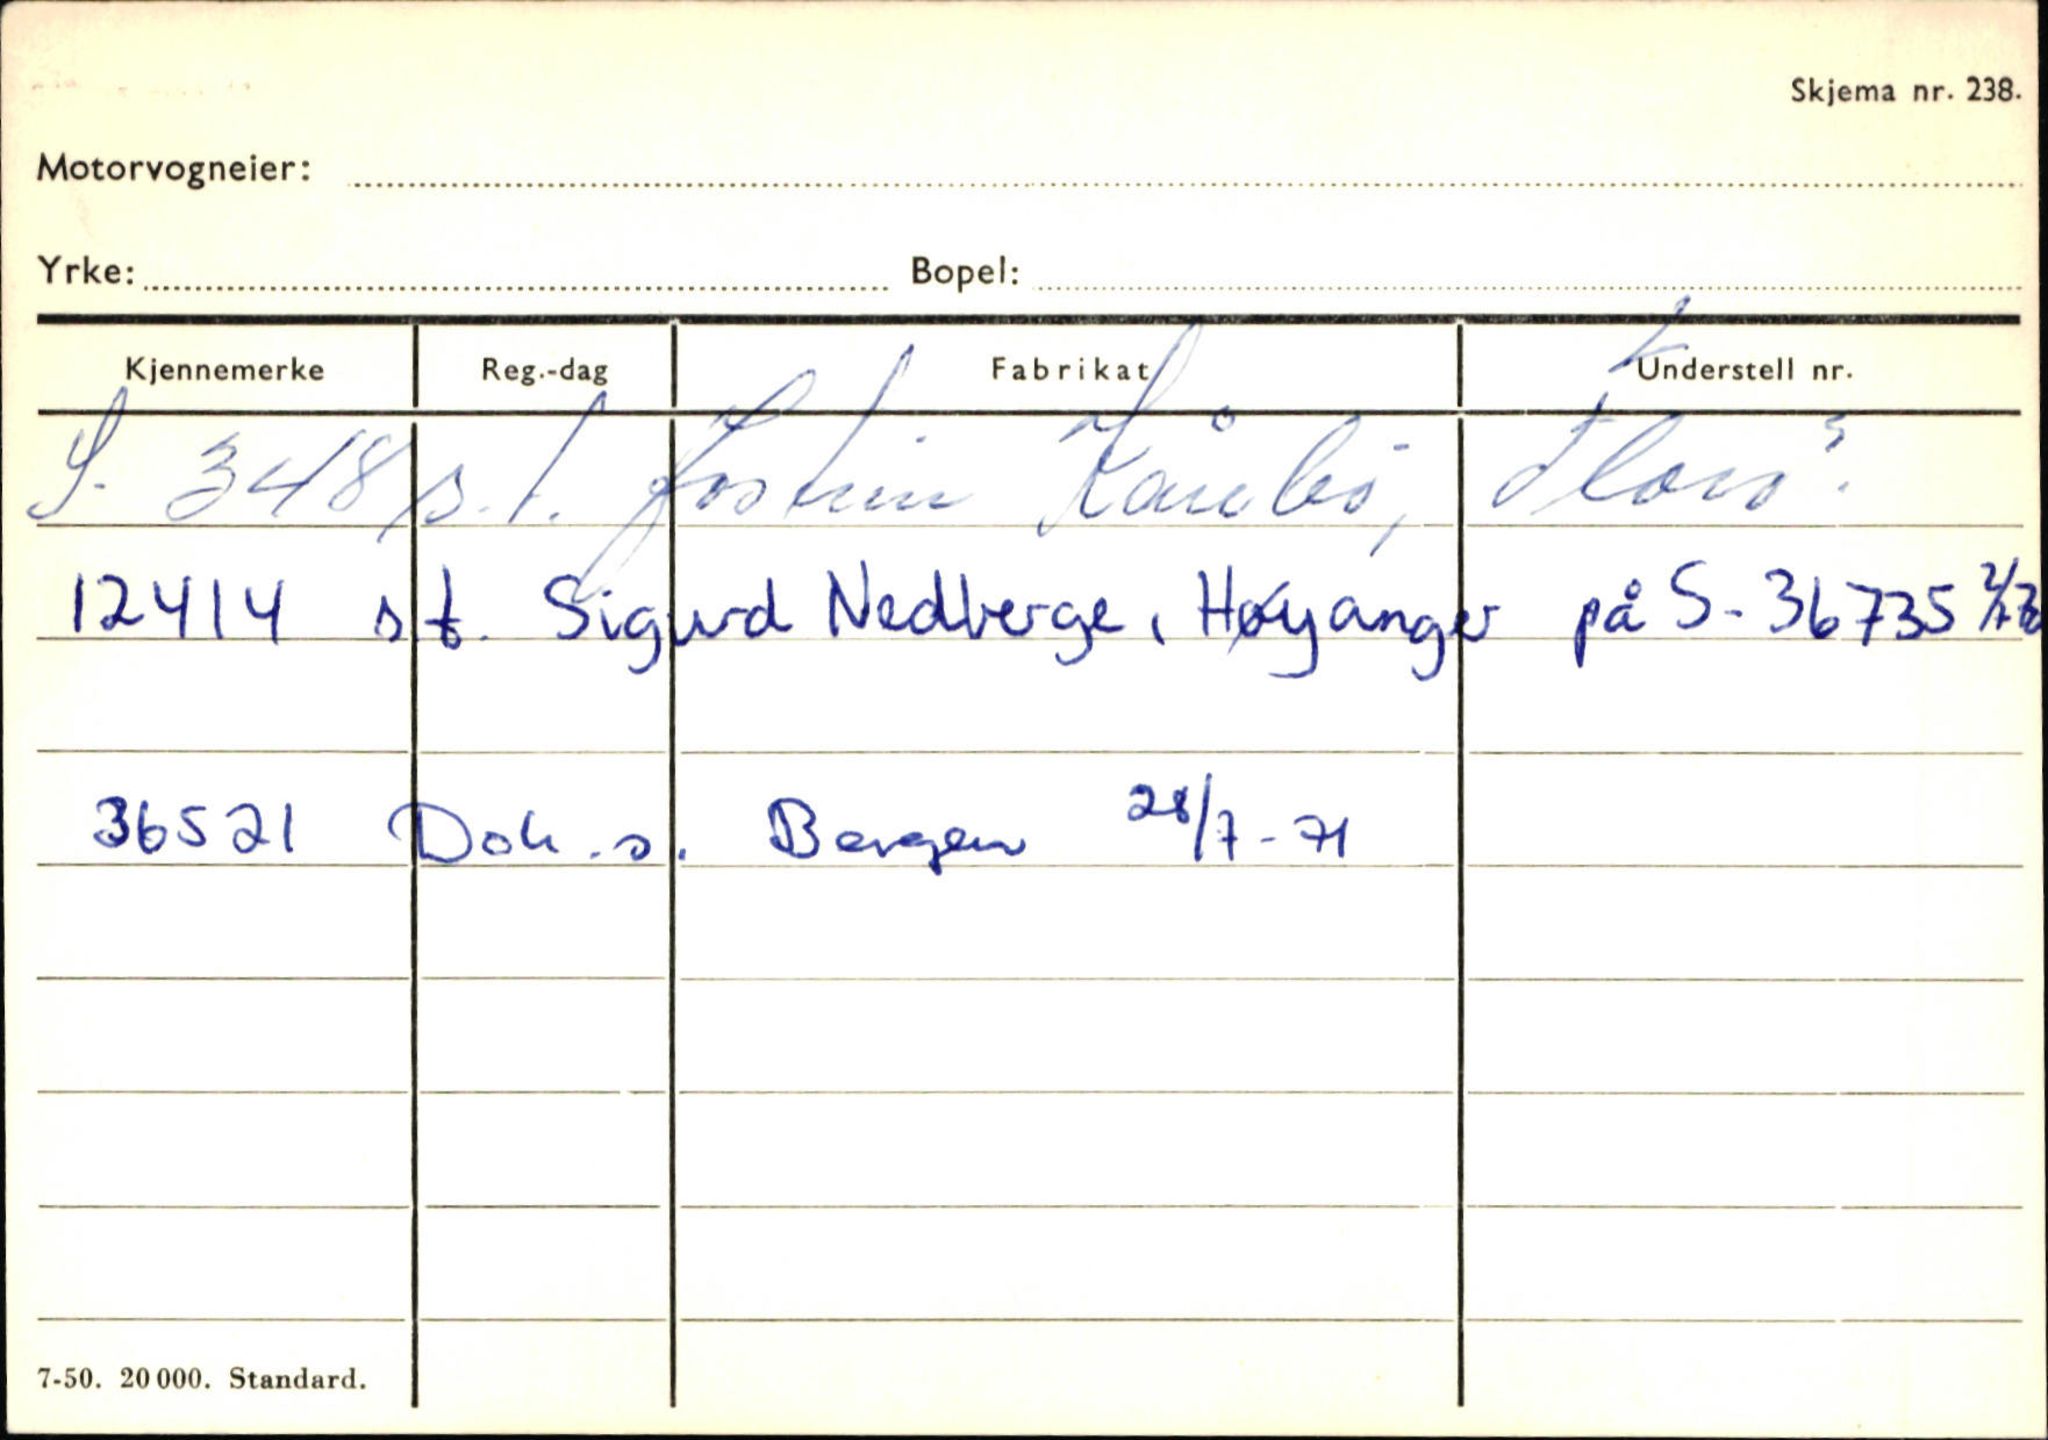 Skjema nr. 238.
Motorvogneier:
Yrke: Bopel:
Kjennemerke Reg.-dag Fabrikat Understell nr.
S. 348 s.t. Jostein Kårbø, Florø.
12414 s.t. Sigurd Nedberge, Høyanger på S-36735
36521 Dok.s. Bergen 28/7-71
7-50. 20 000. Standard.